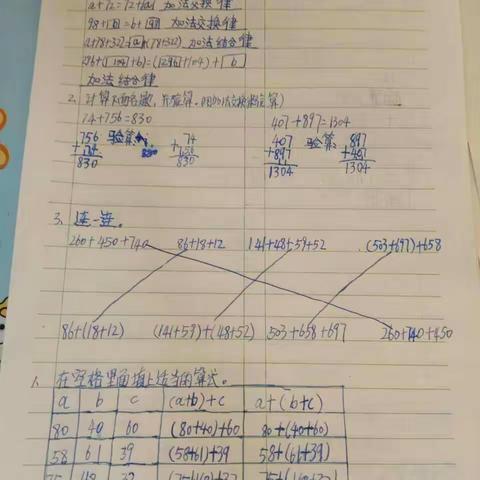 a+72=72+a 加法交换律
98+ =b+ 加法交换律
a+78+322= a+(78+322) 加法结合律
+b)= +104)+ b
加法结合律
2. 计算下面各数,并验算。(用加法交换律验算)
74+756=830 407+897=1304
756 验算: 74 407 验算: 897
+74 +756 +897 +407
830 830 1304 1304
3、连一连。
260+450+740 86+18+12 141+48+59+52 (503+697)+658
86+(18+12) (141+59)+(48+52) 503+658+697 260+740+450
1、在空格里面填上适当的算式。
a b c (a+b)+c a+(b+c)
80 40 60 (80+40)+60 80+(40+60)
58 61 39 (58+61)+39 58+(61+39)